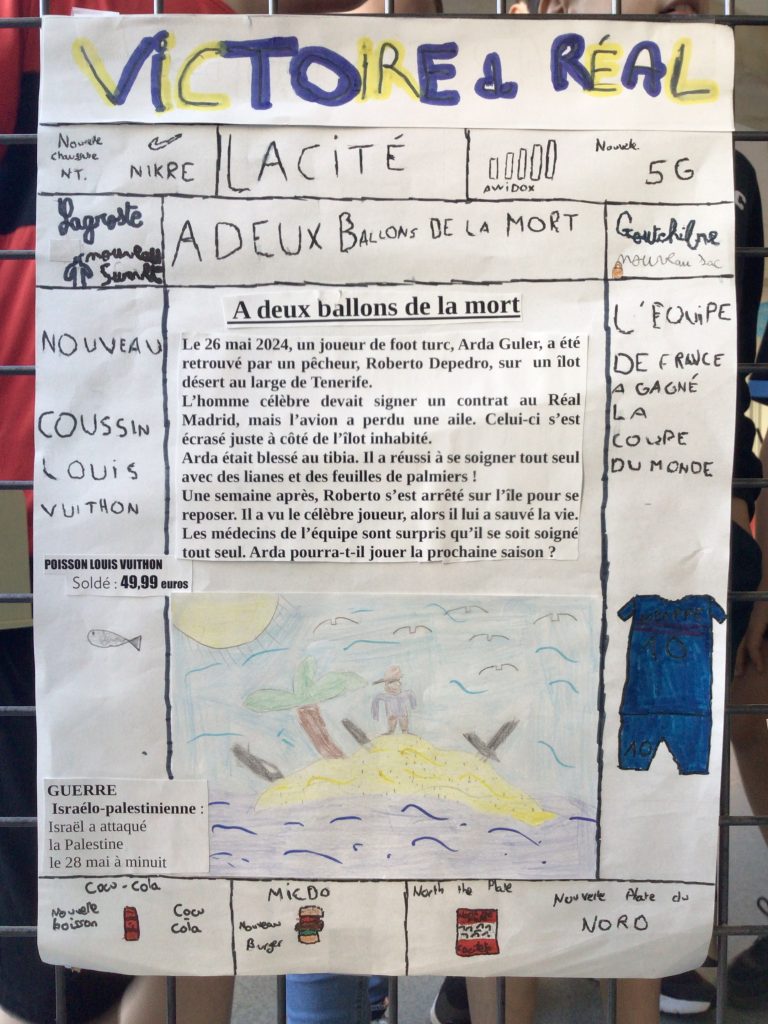 VICTOIRE du RÉAL
Nouvelle
chaussure
NT. NIKRE
LACITÉ
AWIDOX
Nouvelle
5G
Lagroste
nouveau
A DEUX BALLONS DE LA MORT
nouveau sac
A deux ballons de la mort
Le 26 mai 2024, un joueur de foot turc, Arda Guler, a été
retrouvé par un pêcheur, Roberto Depedro, sur un îlot
désert au large de Tenerife.
L'homme célèbre devait signer un contrat au Réal
Madrid, mais l'avion a perdu une aile. Celui-ci s'est
écrasé juste à côté de l'îlot inhabité.
Arda était blessé au tibia. Il a réussi à se soigner tout seul
avec des lianes et des feuilles de palmiers !
Une semaine après, Roberto s'est arrêté sur l'île pour se
reposer. Il a vu le célèbre joueur, alors il lui a sauvé la vie.
Les médecins de l'équipe sont surpris qu'il se soit soigné
tout seul. Arda pourra-t-il jouer la prochaine saison ?
NOUVEAU
COUSSIN
LOUIS
VUITHON
POISSON LOUIS VUITHON
Soldé : 49,99 euros
L'ÉQUIPE
DE FRANCE
A GAGNÉ
LA
COUPE
DU MONDE
10
10
GUERRE
Israélo-palestinienne :
Israël a attaqué
la Palestine
le 28 mai à minuit
Cocu-Cola
Nouvelle
boisson
Cocu
Cola
MICDO
Nouveau
Burger
North the Plate
Nouvelle Plate du
NORD